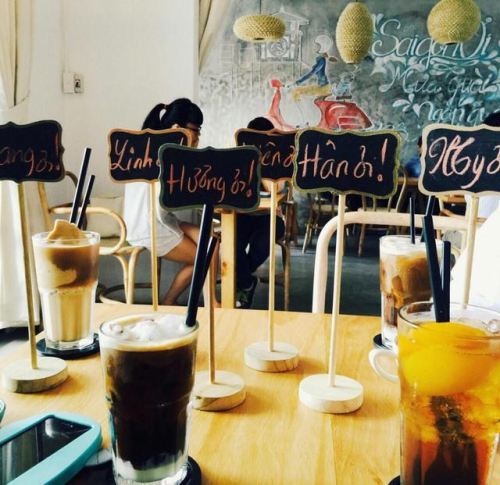 Saigon Vi
Mưa
ang ơi
Linh
Hương ơi!
iên ơi
Hân ơi!
My ơi